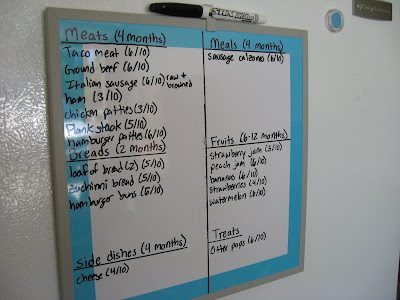 Meats (4 months)
Taco meat (6/10)
Ground beef (6/10)
Italian sausage (6/10) raw + browned
ham (3/10)
chicken patties (3/10)
Flank steak (5/10)
hamburger patties (6/10)
Breads (2 months)
loaf of bread (2) (5/10)
zuchinni bread (5/10)
hamburger buns (5/10)
side dishes (4 months)
cheese (4/10)
Meals (4 months)
sausage calzones (6/10)
Fruits (6-12 months)
strawberry jam (5/10)
peach jam (6/10)
bananas (6/10)
strawberries (4/10)
watermelon (6/10)
Treats
Otter pops (6/10)